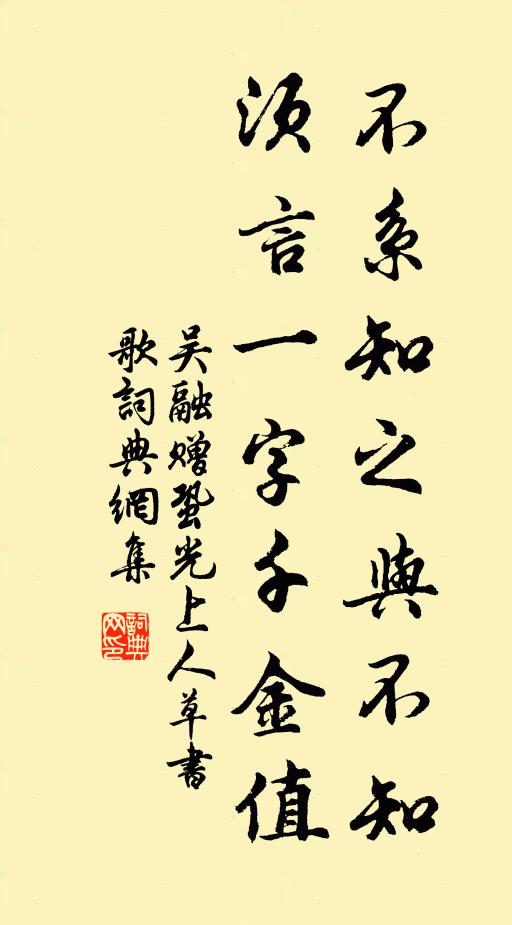 不系知之與不知
須言一字千金值
吴融贈蛩光上人草書
歌詞典網集
詞典網印